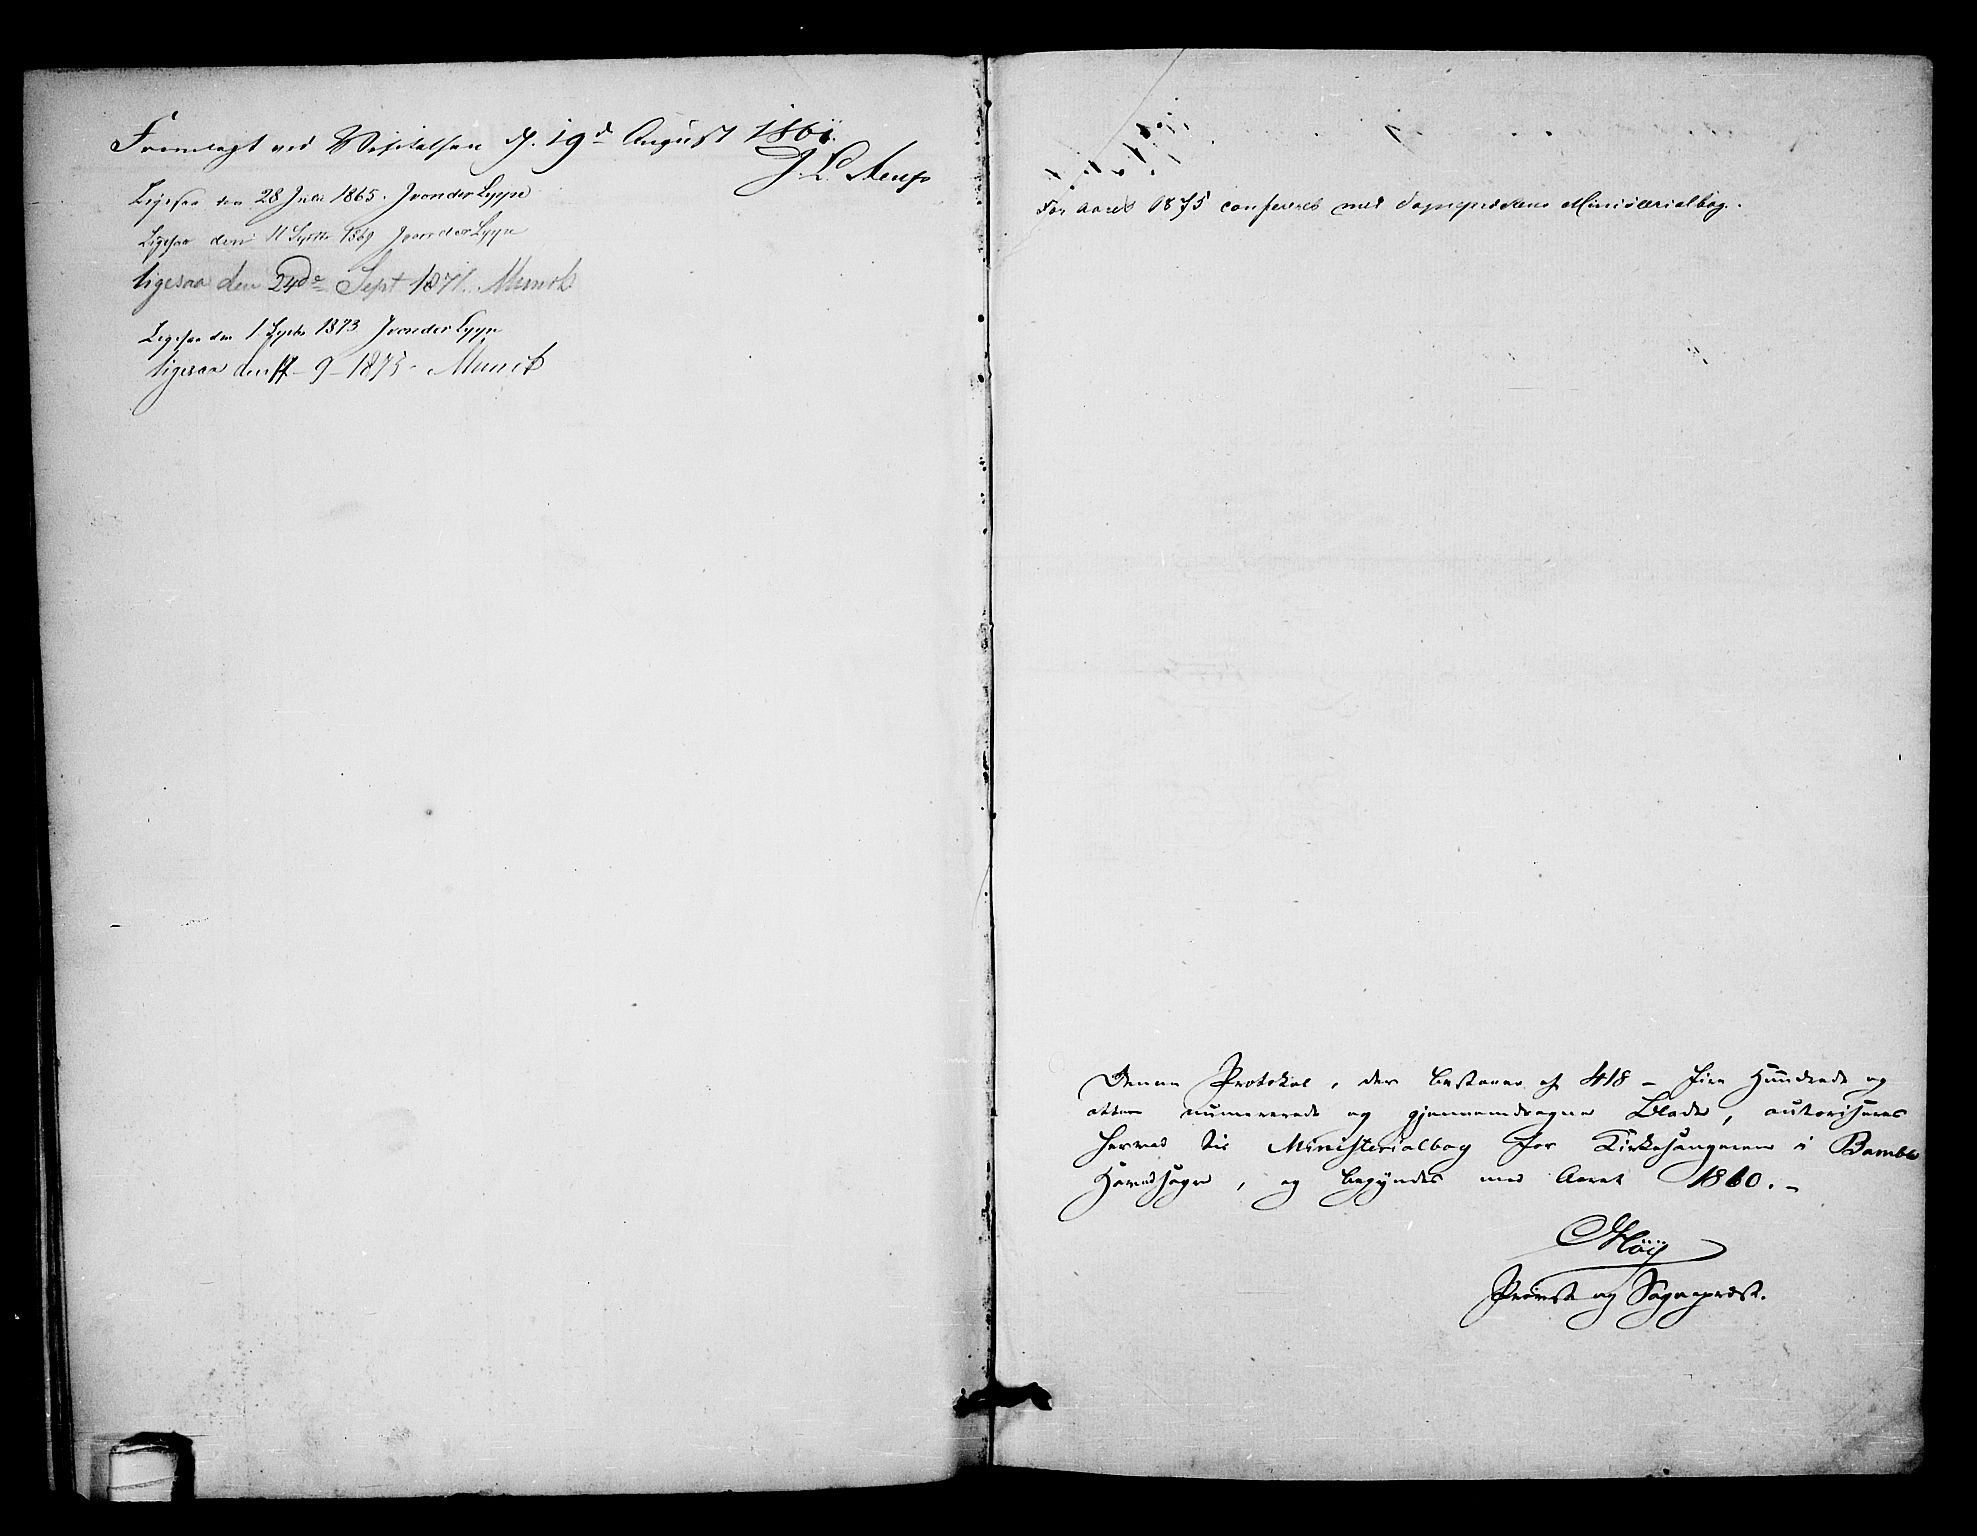 Fremlagt ved Visitatsen d. 19d August 1861.
J. L. Arup
Ligesaa den 28 Juli 1865. J von der Lippe
Ligesaa den 11 Septbr 1869 J von der Lippe
ligesaa den 24de Sept 1871. Munch
Ligesaa den 1 Septbr 1873 J von der Lippe
ligesaa den - 9 - 1875 - Munch
For Aaret 1875 confereret med Sognepræstens Ministerialbog.
Denne Protokol, der bestaaer af 418 - fire Hundrede og
atten numererede og gjennemdragne Blade, autoriseres
herved til Ministerialbog for Kirkesangeren i Bamble
Hovedsogn, og begyndes med Aaret 1860. -
Møy
Provst og Sognepræst.